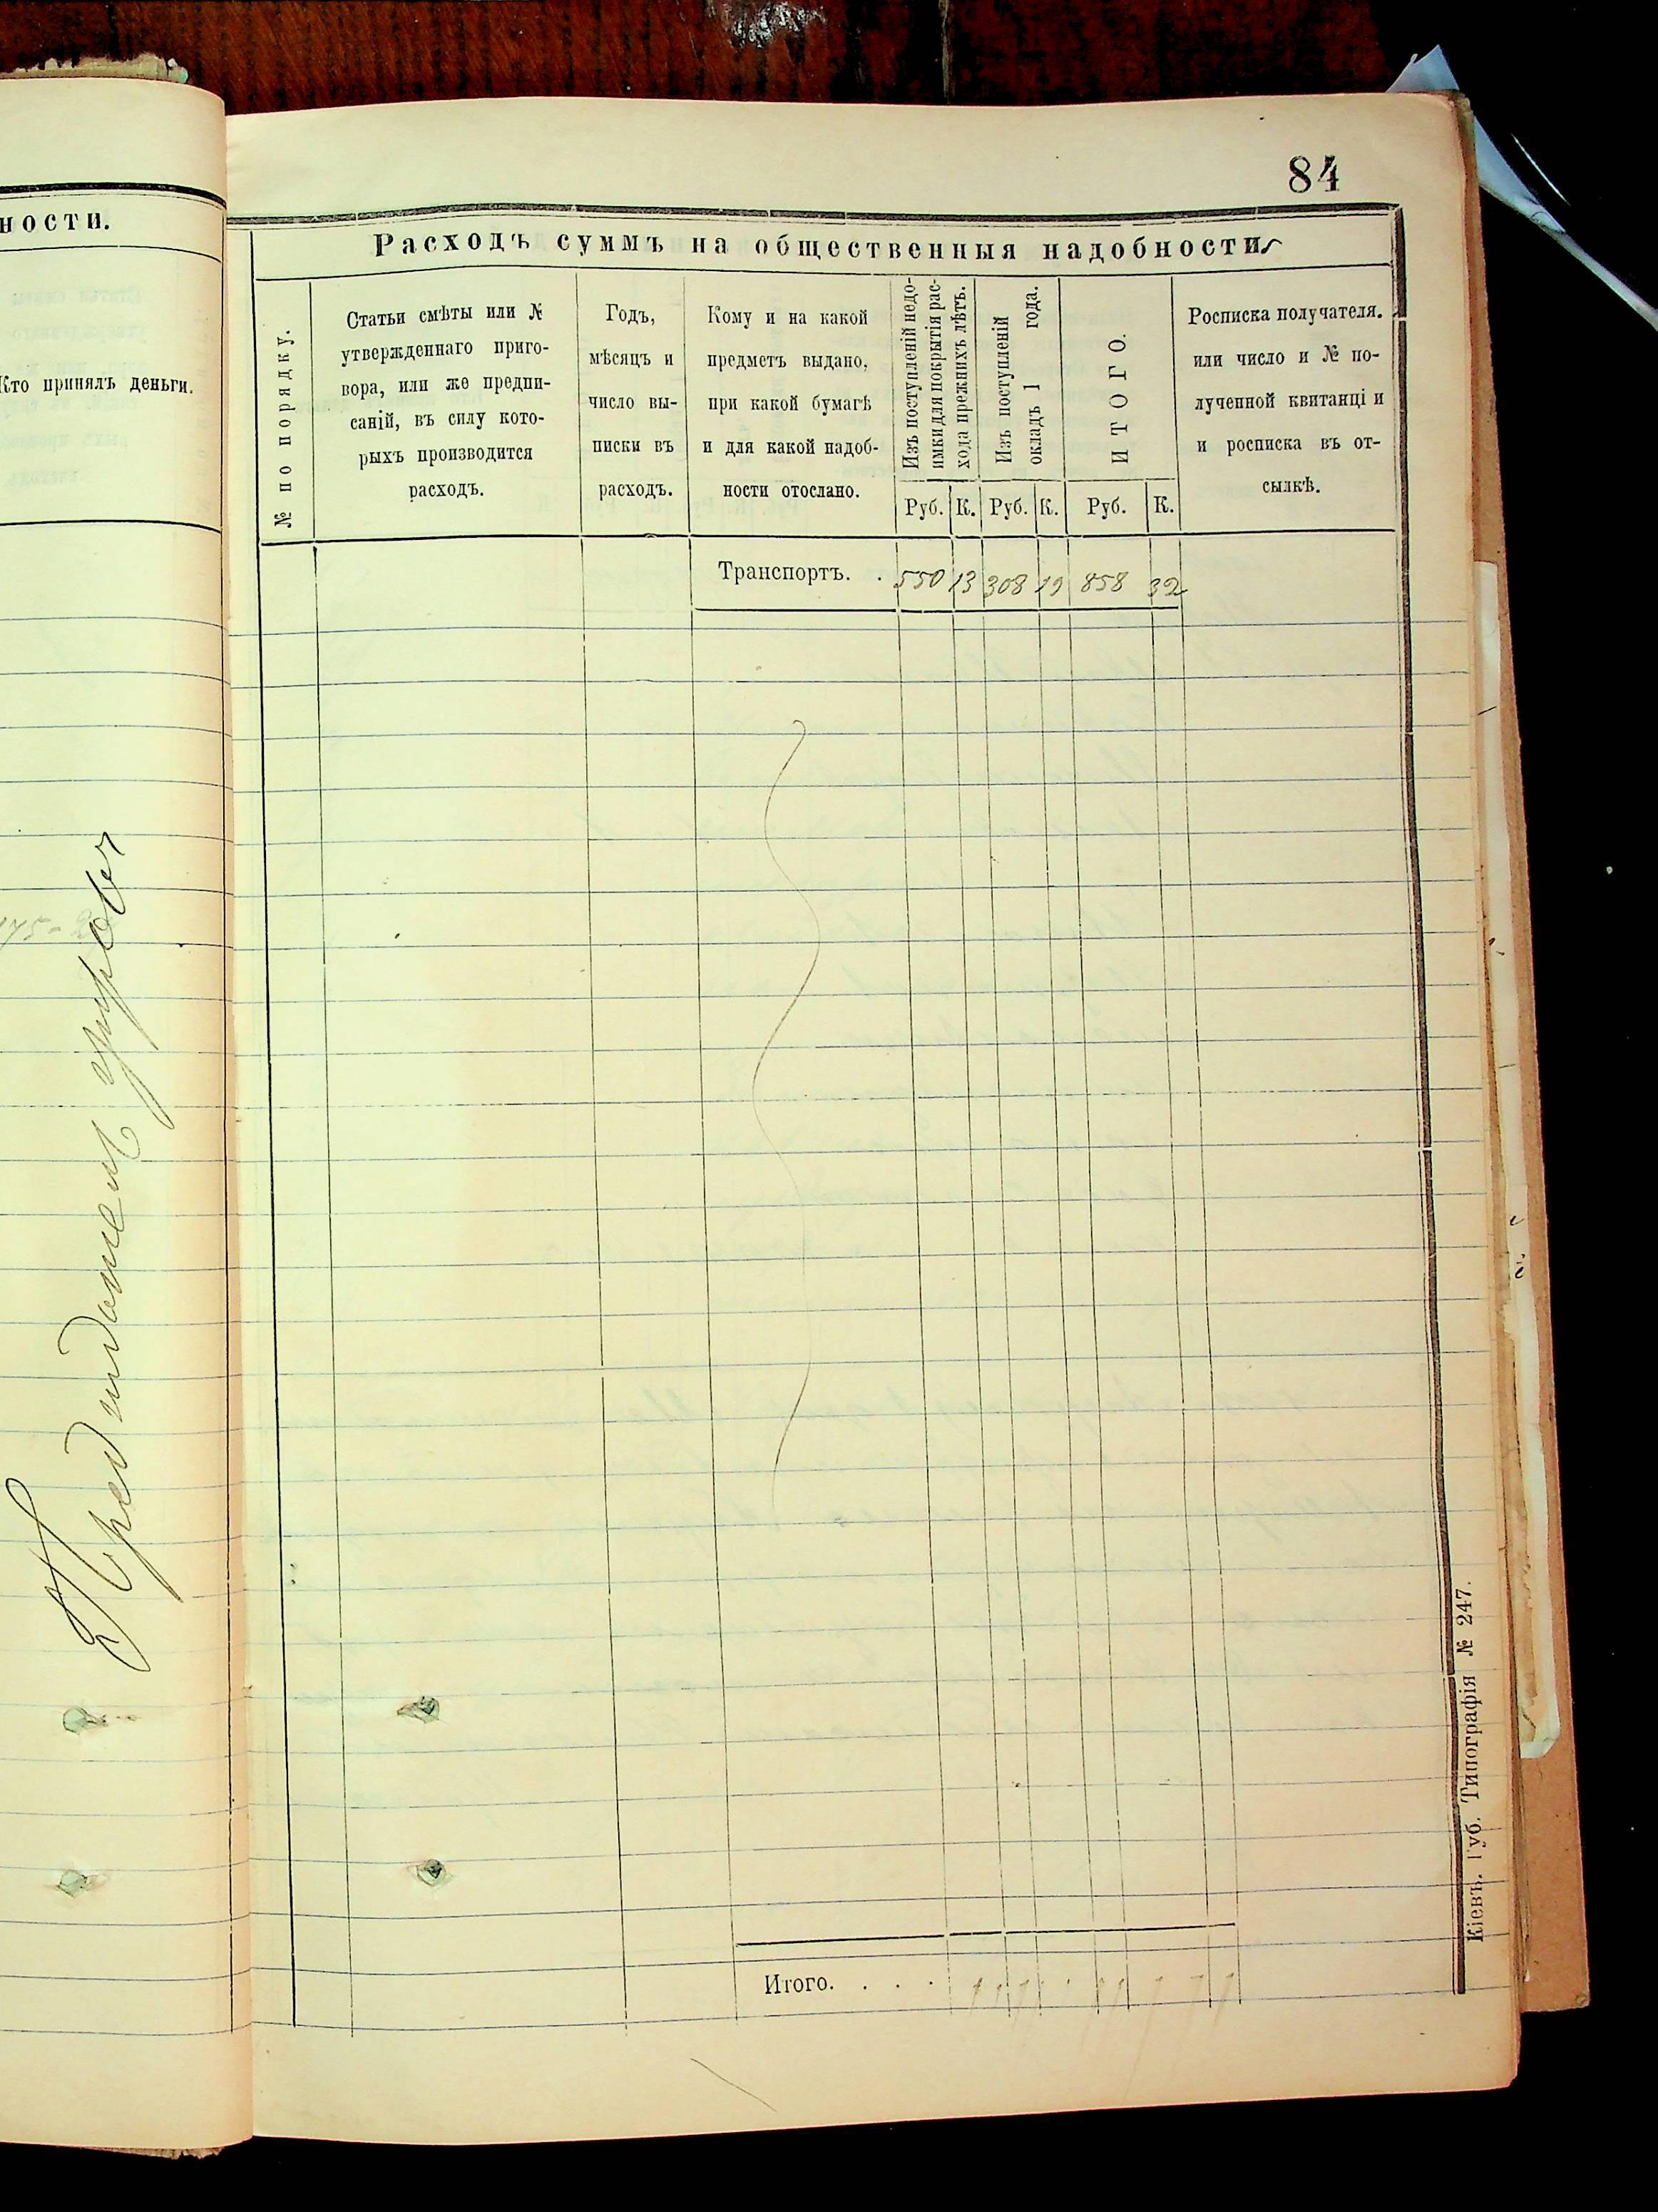 ности.
Кто принялъ деньги.
84
Расходъ суммъ на общественныя надобности
№ по порядку.
Статьи смѣты или №
утвержденнаго приго-
вора, или же предпи-
саній, въ силу кото-
рыхъ производится
расходъ.
Годъ,
мѣсяцъ и
число вы-
писки въ
расходъ.
Кому и на какой
предметъ выдано,
при какой бумагѣ
и для какой надоб-
ности отослано.
Изъ поступленій недо-
имки для покрытія рас-
хода прежнихъ лѣтъ.
Изъ поступленій
окладъ 1 года.
ИТОГО.
Росписка получателя.
или число и № по-
лученной квитанці и
и росписка въ от-
сылкѣ.
Руб. К. Руб. К. Руб. К.
Транспортъ. . 550 13 308 19 858 32
Итого. . . .
Кіевъ. Губ. Типографія № 247.